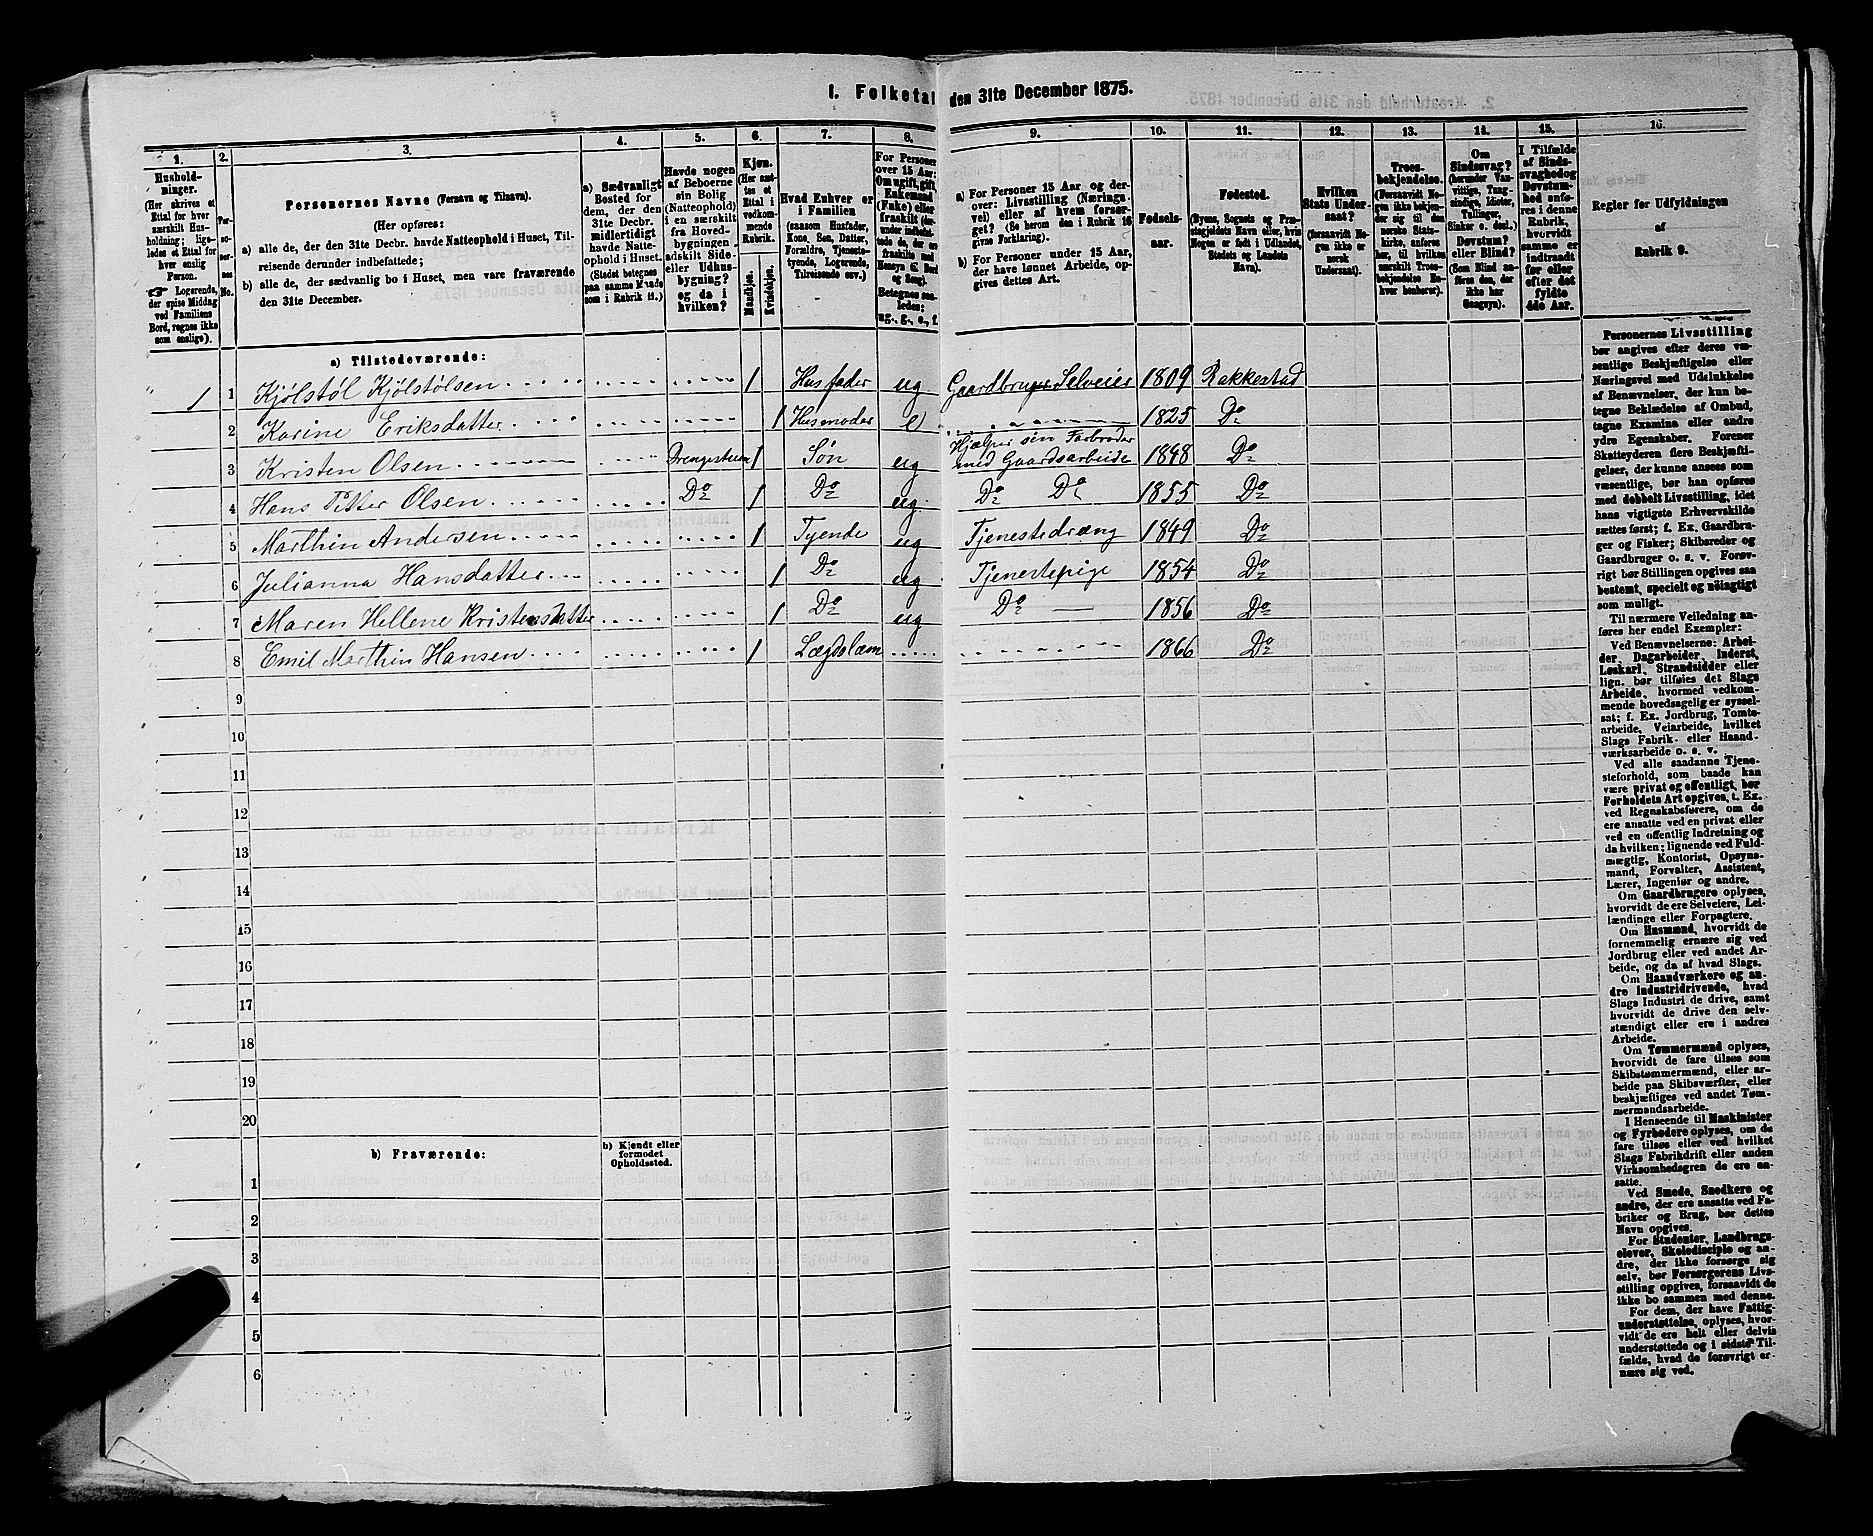 1. Folketal den 31te December 1875.
1. 2. 3. 4. 5. 6. 7. 8. 9. 10. 11. 12. 13. 14. 15. 16.
Hushold-
ninger.
(Her skrives et
Ettal for hver
særskilt Hus-
holdning; lige-
ledes et Ettal
for hver enslig
Person.
☞ Logerende,
der spise Middag
ved Familiens
Bord, regnes ikke
som enslige).
Per-
so-
ner-
nes
No.
Personernes Navne (Fornavn og Tilnavn).
(Her opføres:
a) alle de, der den 31te Decbr. havde Natteophold i Huset, Til-
reisende derunder indbefattede;
b) alle de, der sædvanlig bo i Huset, men vare fraværende
den 31te December.
a) Sædvanligt
Bosted for
dem, der den
31te Decbr.
midlertidigt
havde Natte-
ophold i Huset.
(Stedet betegnes
paa samme Maade
som i Rubrik 11.)
Havde nogen
af Beboerne
sin Bolig
(Natteophold)
i en særskilt
fra Hoved-
bygningen
adskilt Side-
eller Udhus-
bygning?
og da i
hvilken?
Kjøn.
(Her sæt-
tes et
Ettal i
vedkom-
mende
Rubrik.
Mandkjøn.
Kvindekjøn.
Hvad Enhver er
i Familien
(saasom Husfader,
Kone, Søn, Datter,
Forældre, Tjeneste-
tyende, Logerende,
Tilreisende osv.)
For Personer
over 15 Aar:
Om ugift, gift,
Enkemand
(Enke) eller
fraskilt
Betegnes saa-
ledes:
ug., g., e., f.
a) For Personer 15 Aar og der-
over: Livsstilling (Nærings-
vei) eller af hvem forsør-
get? (Se herom den i Rubrik 16
givne Forklaring).
b) For Personer under 15 Aar,
der have lønnet Arbeide, op-
gives dettes Art.
Fødsels-
aar.
Fødested.
(Byens, Sognets og Præ-
stegjeldets Navn eller, hvis
Nogen er født i Udlandet,
Stedets og Landets
Navn).
Hvilken
Stats Under-
saat?
(forsaavidt No-
gen ikke er
norsk
Undersaat).
Troes-
bekjendelse.
(Forsaavidt No-
gen ikke bekjen-
der sig til den
norske Stats-
kirke, anføres
her, til hvilken
særskilt Troes-
bekjendelse En-
hver henhører).
Om
Sindssvag?
(herunder Van-
vittige, Tung-
sindige, Idioter,
Tullinger,
Sinker o. desl.)
Døvstum?
eller Blind?
(Som Blind an-
føres den, der
ikke har
Gangsyn).
I Tilfælde
af Sinds-
svaghed og
Døvstum-
hed anfø-
res i denne
Rubrik,
hvorvidt
samme er
indtraadt
før eller
efter det
fyldte
4de Aar.
Regler for Udfyldningen
af
Rubrik 9.
a) Tilstedeværende:
1 1 Kjølstøl Kjølstølsen 1 Husfader ug Gaardbruger Selveier 1809 Rakkestad
2 Karine Eriksdatter 1 Husmoder e 1825 Do
3 Kristen Olsen 1 Søn ug Hjælper sin Farbroder
med Gaardsarbeide 1848 Do
4 Hans Petter Olsen Do 1 Do ug Do Do 1855 Do
5 Marthin Andersen 1 Tyende ug Tjenestedræng 1849 Do
6 Julianna Hansdatter 1 Do ug Tjenestepige 1854 Do
7 Maren Hellene Kristensdatter 1 Do ug Do 1856 Do
8 Emil Marthin Hansen 1 Lægdslæm 1866 Do
9
10
11
12
13
14
15
16
17
18
19
20
b) Fraværende:
b) Kjendt eller
formodet
Opholdssted.
1
2
3
4
5
6
Personernes Livsstilling
bør angives efter deres væ-
sentlige Beskjæftigelse eller
Næringsvei med Udelukkelse
af Benævnelser, der kun be-
tegne Beklædelse af Ombud,
tagne Examina eller andre
ydre Egenskaber. Forener
Skatteyderen flere Beskjæfti-
gelser, der kunne ansees som
væsentlige, bør han opføres
med dobbelt Livsstilling, idet
hans vigtigste Erhvervskilde
sættes først; f. Ex. Gaardbru-
ger og Fisker; Skibsreder og
Gaardbruger o. s. v. Forøv-
rigt bør Stillingen opgives saa
bestemt, specielt og nøiagtigt
som muligt.
Til nærmere Veiledning an-
føres her endel Exempler:
Ved Benævnelserne: Arbei-
der, Dagarbeider, Inderst,
Løskarl, Strandsidder eller
lign. bør tilføies det Slags
Arbeide, hvormed vedkom-
mende hovedsagelig er syssel-
sat; f. Ex. Jordbrug, Tomte-
arbeide, Veiarbeide, hvilket
Slags Fabrik- eller Haand-
værksarbeide o. s. v.
Ved alle saadanne Tjene-
steforhold, som baade kan
være privat og offentligt, bør
Forholdets Art opgives, t. Ex.
ved Regnskabsførere, om de
ere ansatte ved en privat eller
ved en offentlig Indretning og
da hvilken; lignende ved Fuld-
mægtig, Kontorist, Opsyns-
mand, Forvalter, Assistent,
Lærer, Ingeniør og andre.
Om Gaardbrugere oplyses,
hvorvidt de ere Selveiere, Lei-
lændinge eller Forpagtere.
Om Husmænd, hvorvidt de
fornemmelig ernære sig ved
Jordbrug eller ved andet Ar-
beide, og da af hvad Slags.
Om Haandværkere og an-
dre Industridrivende, hvad
Slags Industri de drive, samt
hvorvidt de drive den selv-
stændigt eller ere i andres
Arbeide.
Om Tømmermænd oplyses,
hvorvidt de fare tilsøs som
Skibstømmermænd, eller ar-
beide paa Skibsværfter, eller
beskjæftiges ved andet Tøm-
mermandsarbeide.
I Henseende til Maskinister
og Fyrbødere oplyses, om de
fare tilsøs eller ved hvilket
Slags Fabrikdrift eller anden
Virksomhedsgren de ere an-
satte.
Ved Smede, Snedkere og
andre, der ere ansatte ved Fa-
briker og Brug, bør dettes
Navn opgives.
For Studenter, Landbrugs-
elever, Skoledisciple og an-
dre, der ikke forsørge sig
selv, bør Forsørgerens Livs-
stilling opgives, forsaavidt de
ikke bo sammen med denne.
For dem, der have Fattig-
understøttelse, oplyses, hvor-
vidt de ere helt eller delvis
understøttede og i sidste Til-
fælde, hvad de forøvrigt er-
nære sig ved.